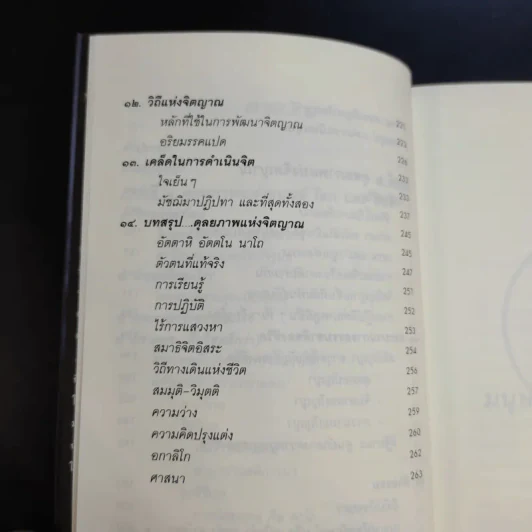 ๑๒. วิถีแห่งจิตญาณ
หลักที่ใช้ในการพัฒนาจิตญาณ
อริยมรรคแปด
๑๓. เคล็ดในการดำเนินจิต
ใจเย็น ๆ
มัชฌิมาปฏิปทา และที่สุดทั้งสอง 237
๑๔. บทสรุป...ดุลยภาพแห่งจิตญาณ 245
อัตตาหิ อัตตโน นาโถ 245
ตัวตนที่แท้จริง 247
การเรียนรู้ 251
การปฏิบัติ 251
ไร้การแสวงหา 253
สมาธิจิตอิสระ 254
วิถีทางเดินแห่งชีวิต 256
สมมุติ-วิมุตติ 257
ความว่าง 259
ความคิดปรุงแต่ง 260
อกาลิโก 262
ศาสนา 263